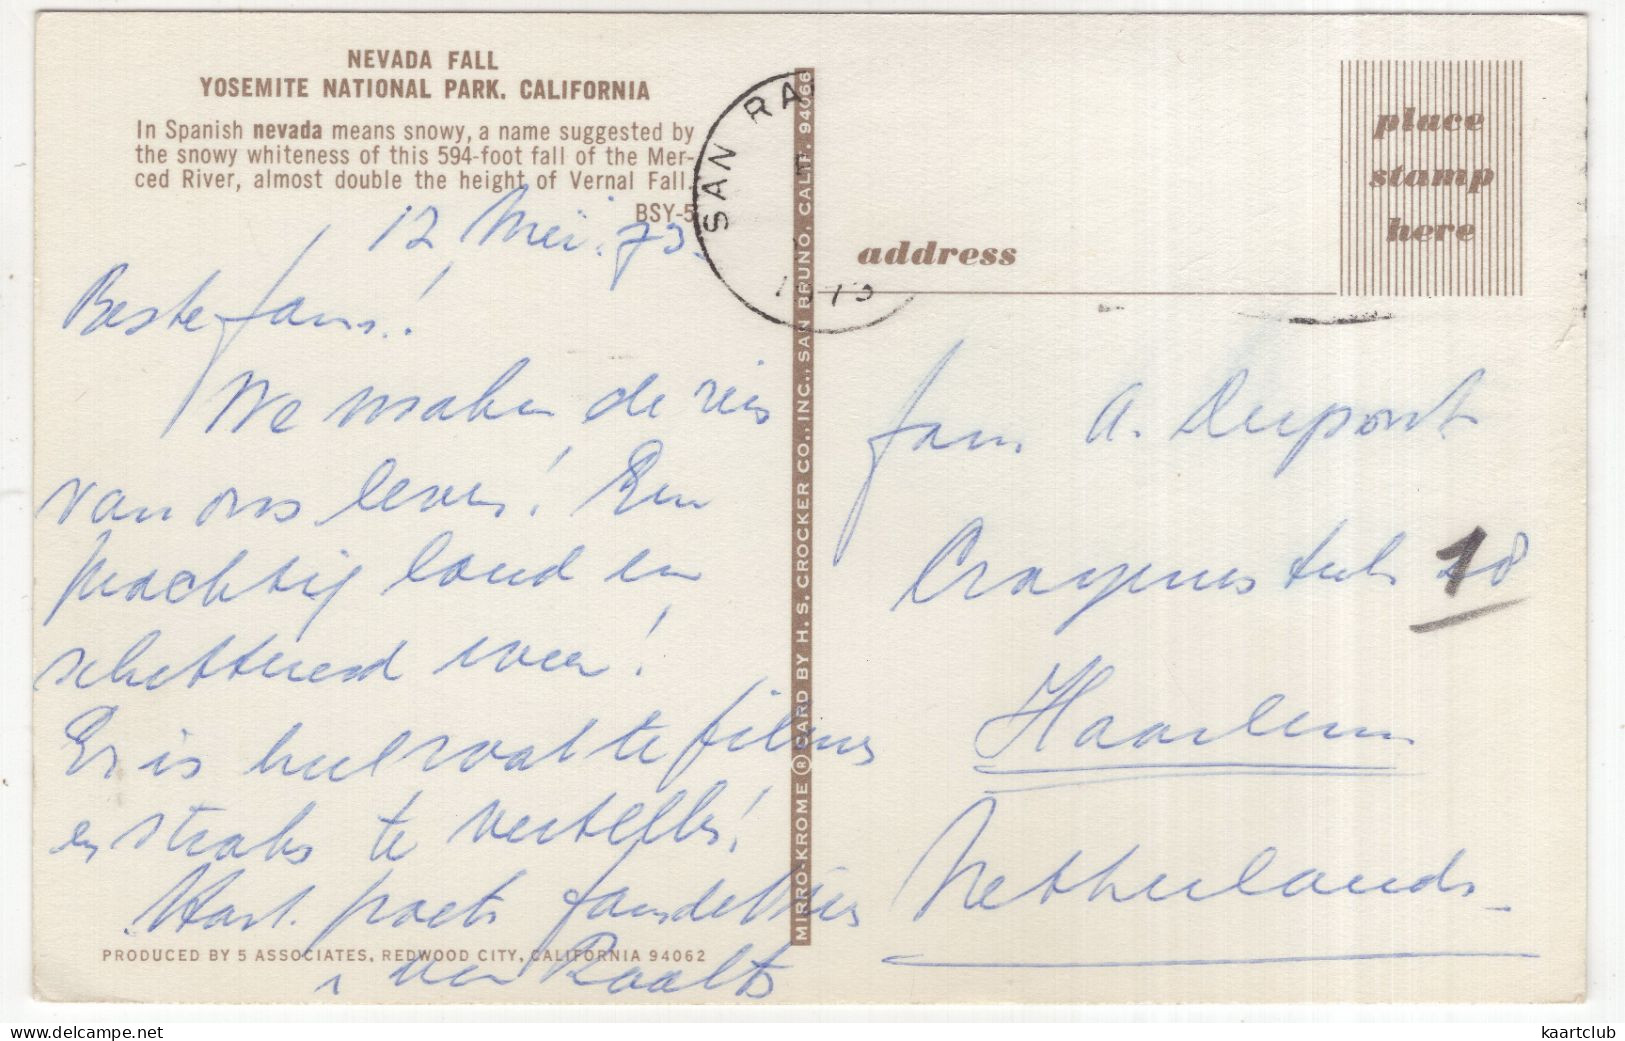 NEVADA FALL
YOSEMITE NATIONAL PARK, CALIFORNIA
In Spanish nevada means snowy, a name suggested by
the snowy whiteness of this 594-foot fall of the Mer-
ced River, almost double the height of Vernal Fall.
BSY-5
12 Mei. 73.
Beste fam.!
We maken de reis
van ons leven! Een
prachtig land en
schitterend weer!
Er is heel wat te filmen
en straks te vertellen!
Hart. groets fam
van Raalte
PRODUCED BY 5 ASSOCIATES, REDWOOD CITY, CALIFORNIA 94062
SAN RA
MIRRO-KROME ® CARD BY H. S. CROCKER CO., INC., SAN BRUNO, CALIF. 94066
place
stamp
here
address
fam. A. Dupont
18
Haarlem
Netherlands
kaartclub